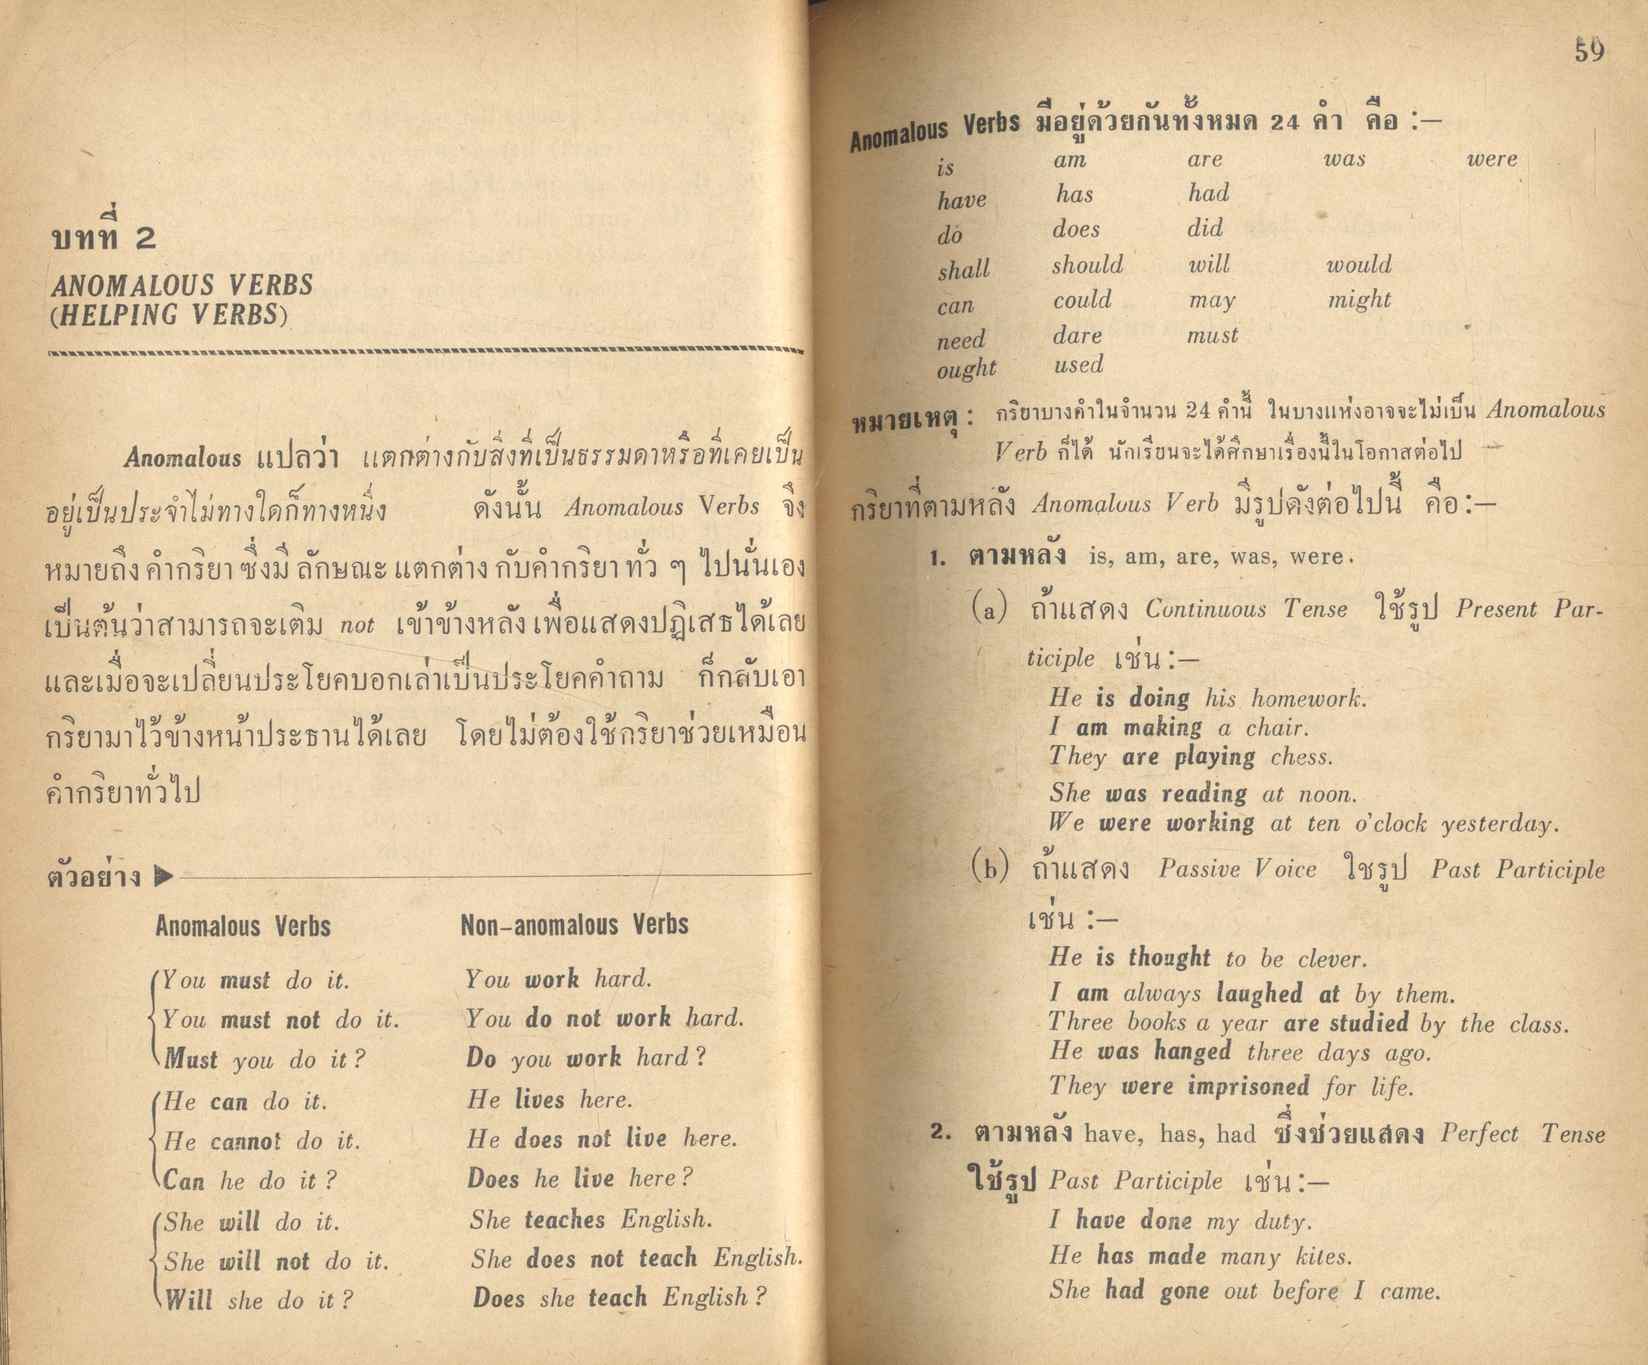 บทที่ 2
ANOMALOUS VERBS
(HELPING VERBS)
Anomalous แปลว่า แตกต่างกับสิ่งที่เป็นธรรมดาหรือที่เคยเป็น
อยู่เป็นประจำไม่ทางใดก็ทางหนึ่ง ดังนั้น Anomalous Verbs จึง
หมายถึง คำกริยา ซึ่งมี ลักษณะ แตกต่าง กับคำกริยา ทั่ว ๆ ไปนั่นเอง
เป็นต้นว่าสามารถจะเติม not เข้าข้างหลัง เพื่อแสดงปฏิเสธได้เลย
และเมื่อจะเปลี่ยนประโยคบอกเล่าเป็นประโยคคำถาม ก็กลับเอา
กริยามาไว้ข้างหน้าประธานได้เลย โดยไม่ต้องใช้กริยาช่วยเหมือน
คำกริยาทั่วไป
ตัวอย่าง
Anomalous Verbs Non-anomalous Verbs
You must do it. You work hard.
You must not do it. You do not work hard.
Must you do it? Do you work hard?
He can do it. He lives here.
He cannot do it. He does not live here.
Can he do it? Does he live here?
She will do it. She teaches English.
She will not do it. She does not teach English.
Will she do it? Does she teach English?
59
Anomalous Verbs มีอยู่ด้วยกันทั้งหมด 24 คำ คือ :—
is am are was were
have has had
do does did
shall should will would
can could may might
need dare must
ought used
หมายเหตุ : กริยาบางคำในจำนวน 24 คำนี้ ในบางแห่งอาจจะไม่เป็น Anomalous
Verb ก็ได้ นักเรียนจะได้ศึกษาเรื่องนี้ในโอกาสต่อไป
กริยาที่ตามหลัง Anomalous Verb มีรูปดังต่อไปนี้ คือ :—
1. ตามหลัง is, am, are, was, were.
(a) ถ้าแสดง Continuous Tense ใช้รูป Present Par-
ticiple เช่น :—
He is doing his homework.
I am making a chair.
They are playing chess.
She was reading at noon.
We were working at ten o'clock yesterday.
(b) ถ้าแสดง Passive Voice ใชรูป Past Participle
เช่น :—
He is thought to be clever.
I am always laughed at by them.
Three books a year are studied by the class.
He was hanged three days ago.
They were imprisoned for life.
2. ตามหลัง have, has, had ซึ่งช่วยแสดง Perfect Tense
ใช้รูป Past Participle เช่น :—
I have done my duty.
He has made many kites.
She had gone out before I came.